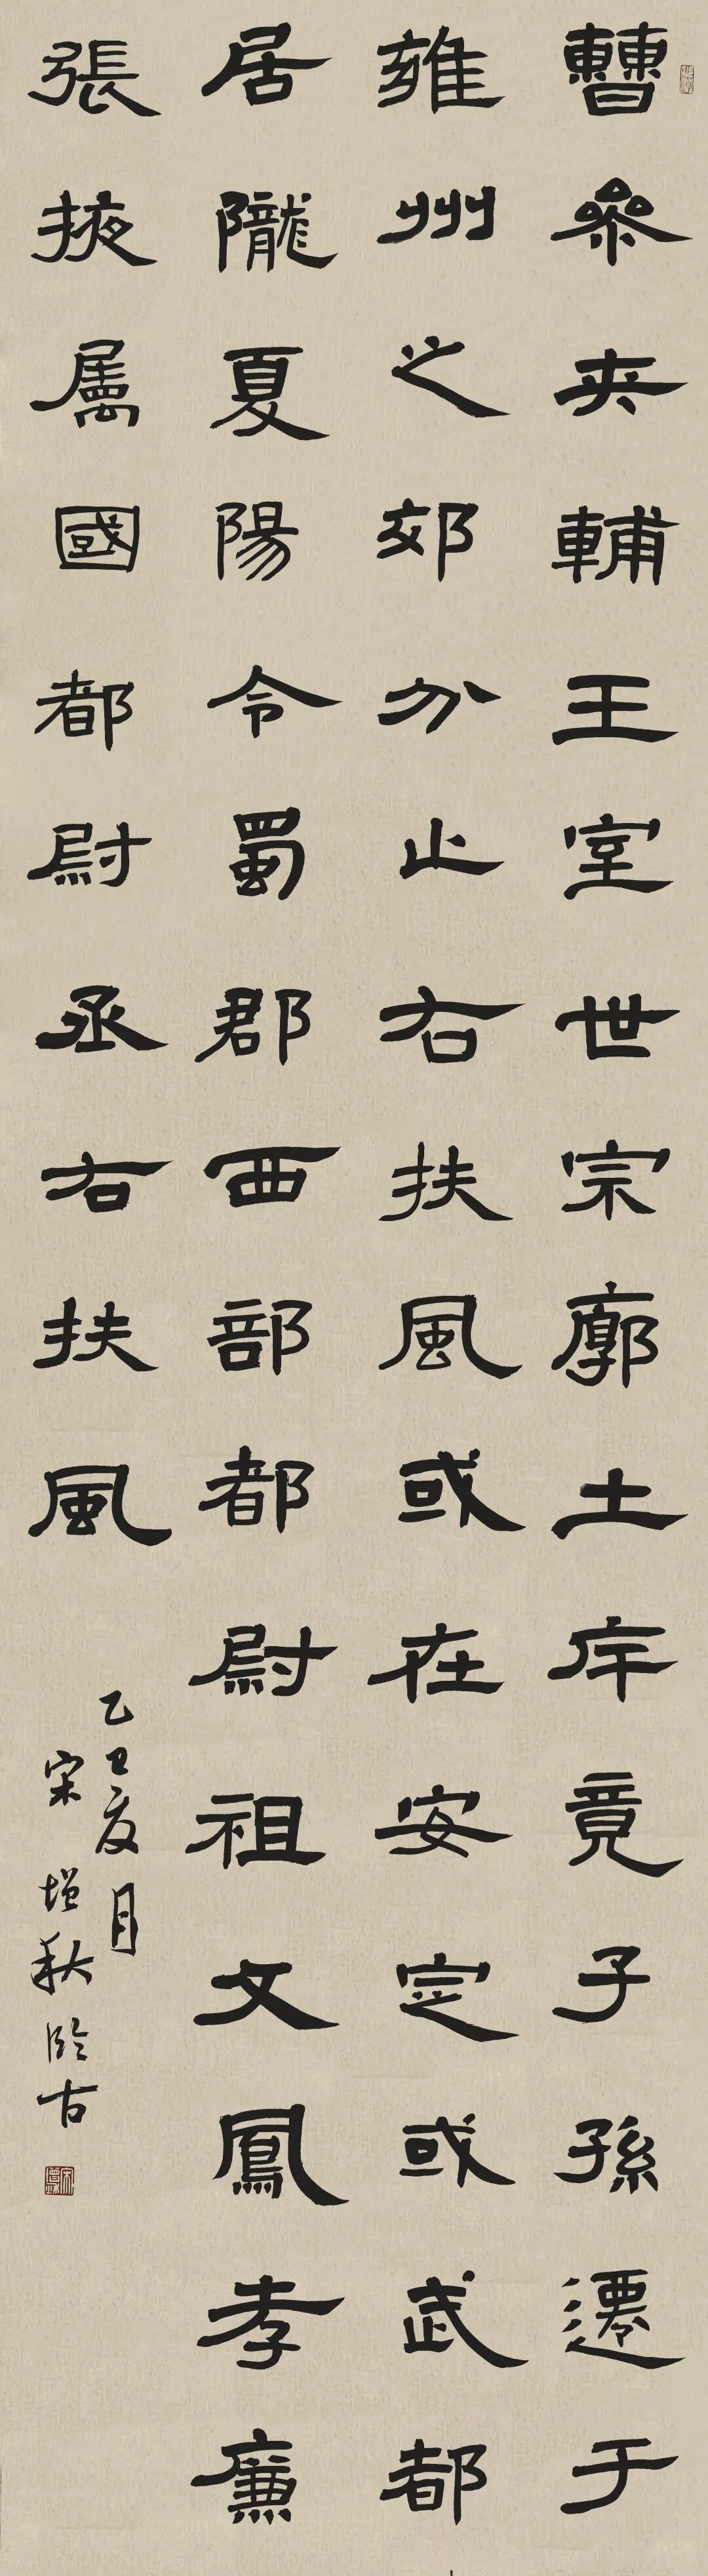 曹參夾輔王室世宗廓土庁竟子孫遷于
雍州之郊分止右扶風或在安定或武都
居隴夏陽令蜀郡西部都尉祖父鳳孝廉
張掖屬國都尉丞右扶風
乙丑夏月
宋增秋臨古